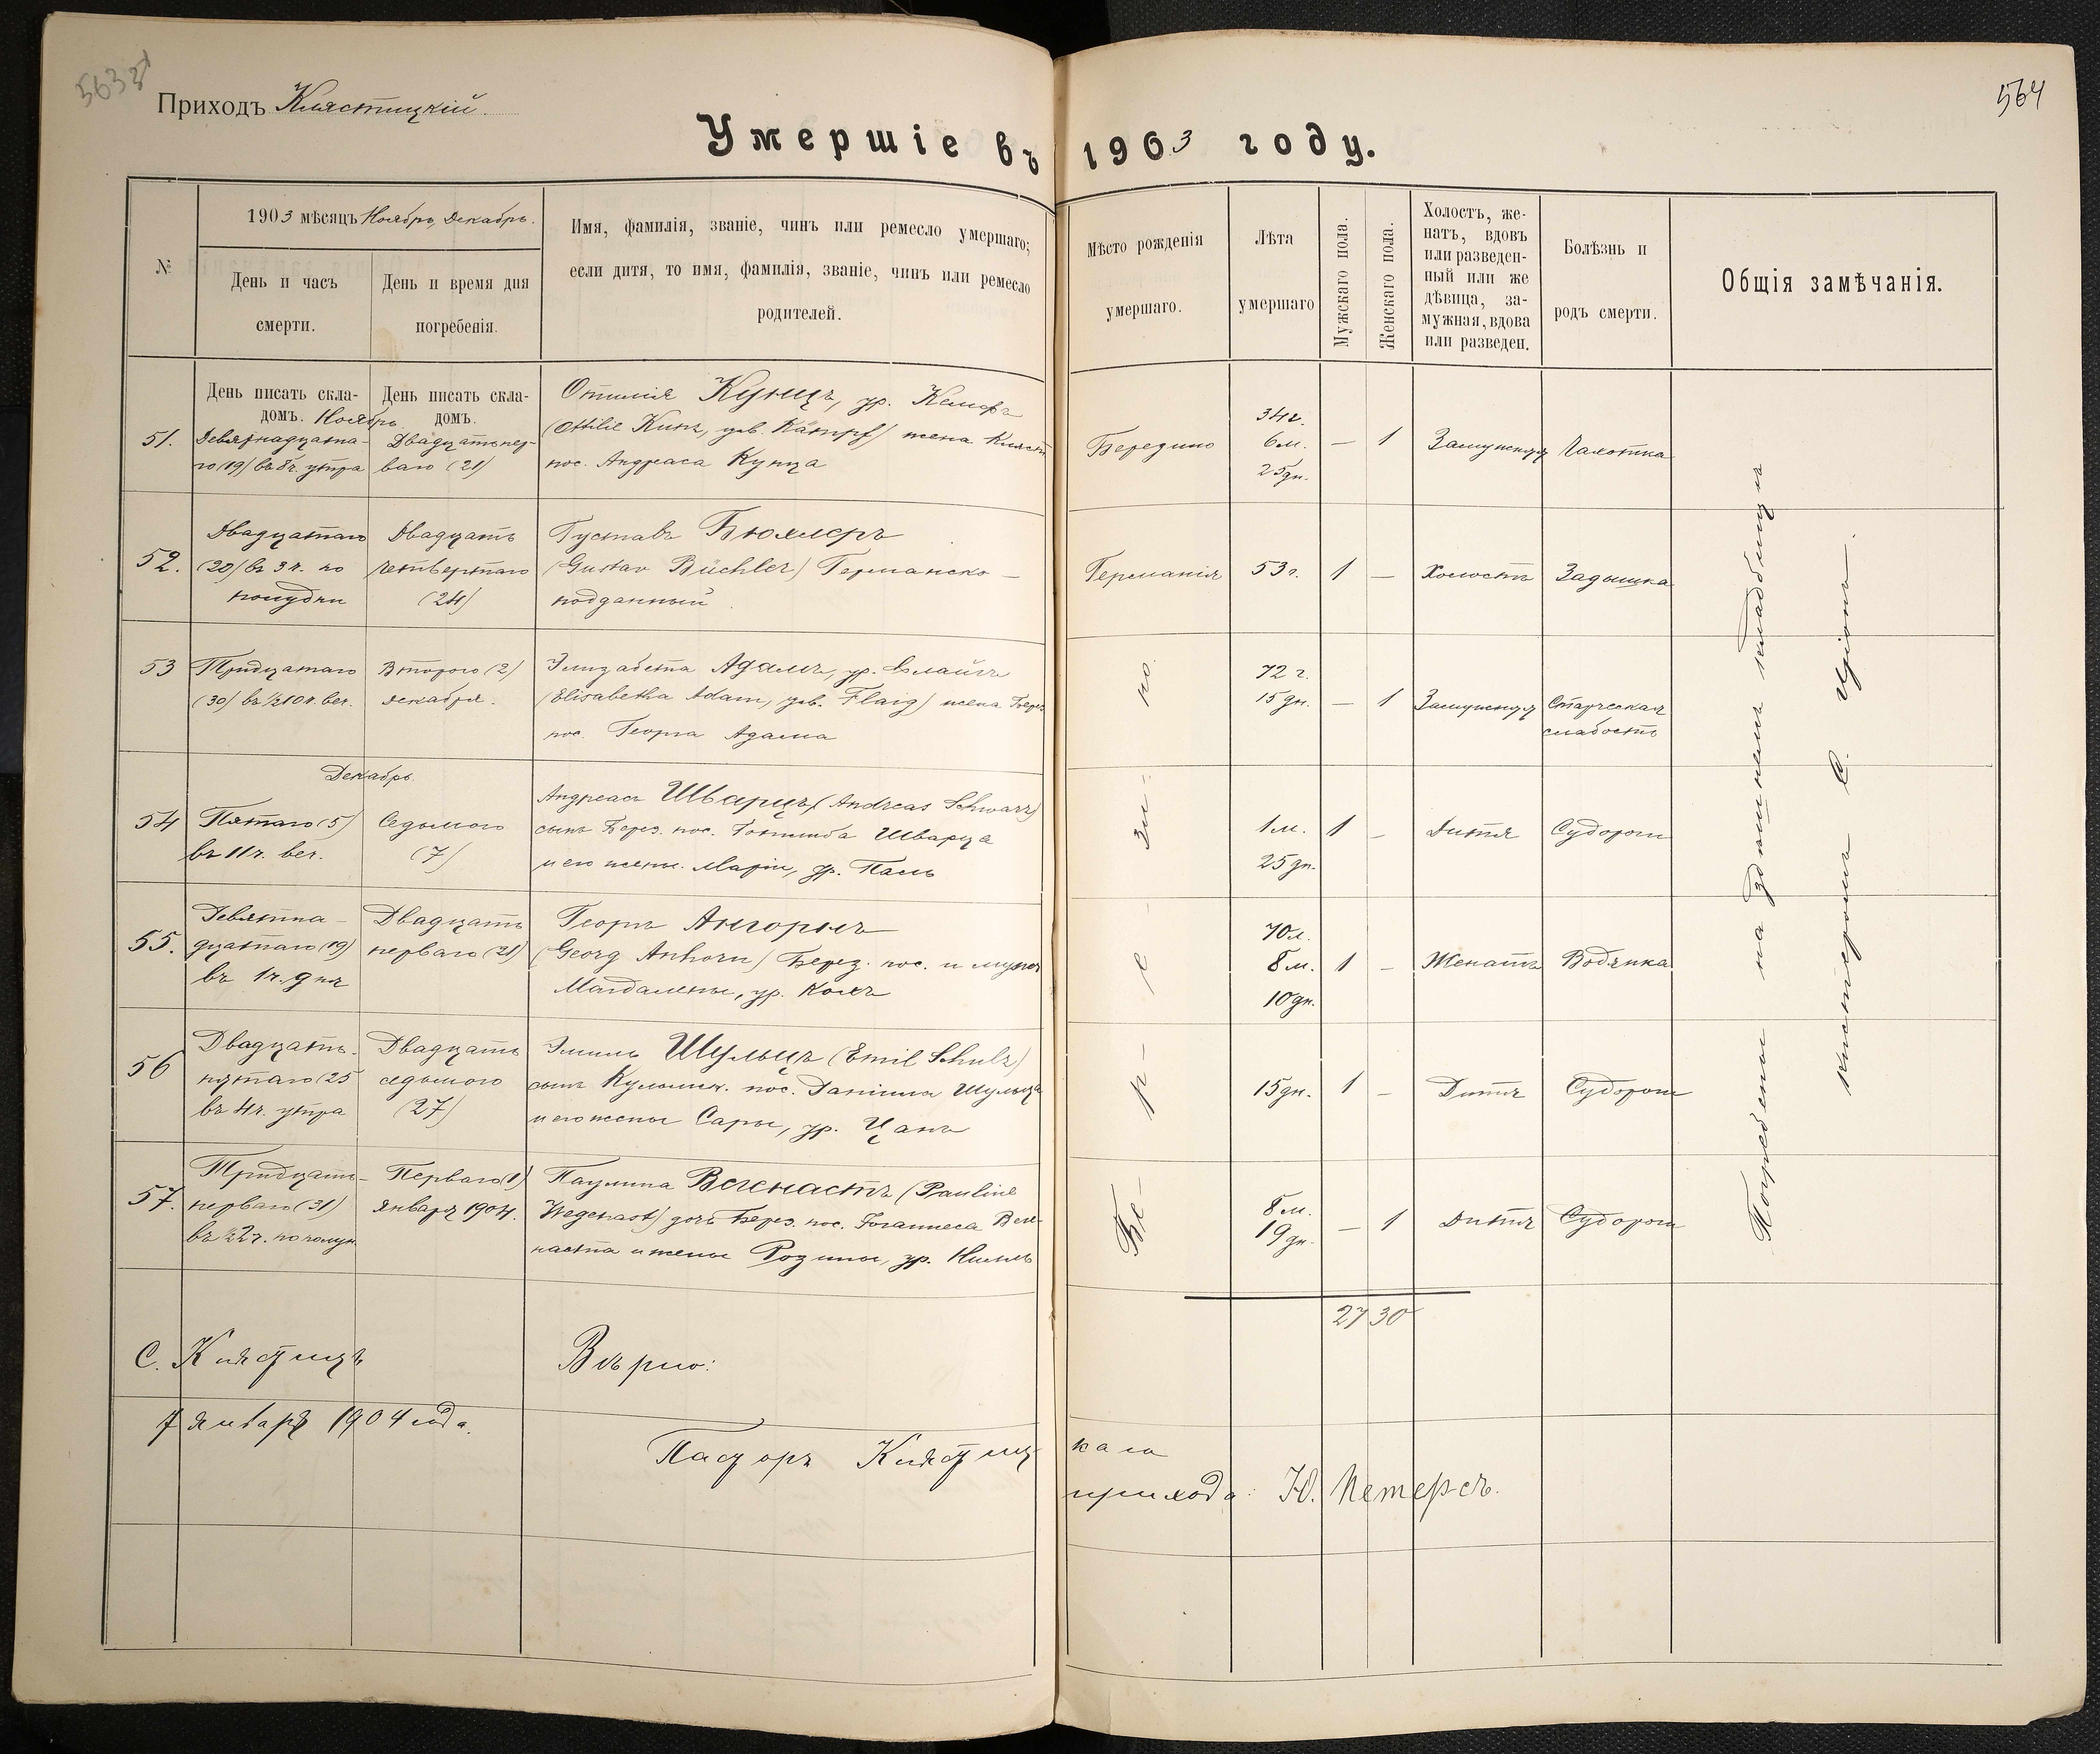 563 об
Приходъ Клястицкій.
564
Умершіе въ 1903 году.
№
1903 мѣсяцъ Ноябрь, Декабрь.
День и часъ смерти.
День и время дня погребенія.
Имя, фамилія, званіе, чинъ или ремесло умершаго;
если дитя, то имя, фамилія, званіе, чинъ или ремесло
родителей.
Мѣсто рожденія
умершаго.
Лѣта
умершаго
Мужскаго пола.
Женскаго пола.
Холостъ, же-
натъ, вдовъ
или разведен-
ный или же
дѣвица, за-
мужная, вдова
или разведен.
Болѣзнь и
родъ смерти.
Общія замѣчанія.
День писать скла-
домъ. Ноябрь.
День писать скла-
домъ.
51.
Девятнадцата-
го (19) въ 8 ч. утра
Двадцать пер-
ваго (21)
Оттилія Кунцъ, ур. Кемпфъ
(Ottilie Kunz, geb. Kämpf) жена Кляст.
пос. Андреаса Кунца
Березино
34 г.
6 м.
25 дн.
— 1
Замужняя
Чахотка
52.
Двадцатаго
(20) въ 3 ч. по
полудни
Двадцать
четвертаго
(24)
Густавъ Бюхлеръ
(Gustav Büchler) Германско-
подданный.
Германія
53 г.
1 —
Холостъ
Задышка
53
Тридцатаго
(30) въ ½10 ч. веч.
Второго (2)
декабря.
Элизабета Адамъ, ур. Флайгъ
(Elisabetha Adam, geb. Flaig) жена Берез.
пос. Георга Адама
72 г.
15 дн.
— 1
Замужняя
Старческая
слабость
Декабрь
54
Пятаго (5)
въ 11 ч. веч.
Седьмого
(7)
Андреасъ Шварцъ (Andreas Schwarz)
сынъ Берез. пос. Готтлиба Шварца
и его жены Маріи, ур. Паль
1 м.
25 дн.
1 —
Дитя
Судороги
55.
Девятна-
дцатаго (19)
въ 1 ч. дня
Двадцать
перваго (21)
Георгъ Ангорнъ
(Georg Anhorn) Берез. пос. и мужъ
Магдалены, ур. Колъ
70 л.
8 м.
10 дн.
1 —
Женатъ
Водянка
56
Двадцать-
пятаго (25
въ 4 ч. утра
Двадцать
седьмого
(27)
Эмиль Шульцъ (Emil Schulz)
сынъ Кульмск. пос. Даніила Шульца
и его жены Сары, ур. Цанъ
15 дн.
1 —
Дитя
Судороги
57.
Тридцать-
перваго (31)
въ ½2 ч. пополун.
Перваго (1)
Января 1904.
Паулина Вегенастъ (Pauline
Wegenast) дочь Берез. пос. Іоганнеса Веге-
наста и жены Розины, ур. Нилль
8 м.
19 дн.
— 1
Дитя
Судороги
Бе-ре-зи-но.
Погребены на здѣшнемъ кладбищѣ
27 30
С. Клястицъ
7 января 1904 года.
Вѣрно:
Пасторъ Клястиц-
каго
прихода: Ю. Петерсъ.